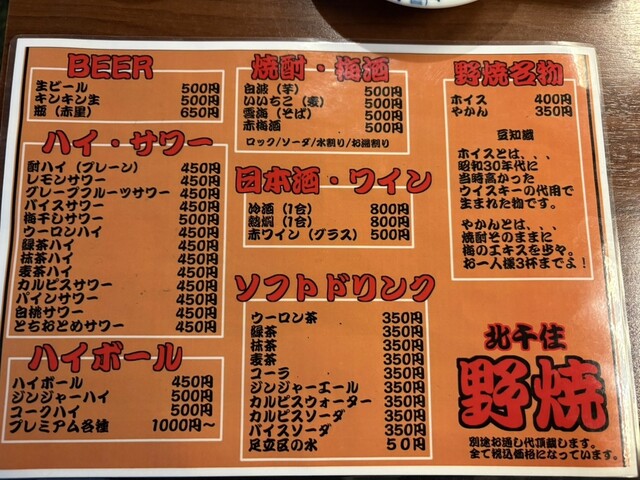 BEER
生ビール 500円
キンキン生 500円
瓶（赤里） 650円
ハイ・サワー
酎ハイ（プレーン） 450円
レモンサワー 450円
グレープフルーツサワー 450円
パイスサワー 450円
梅干しサワー 500円
ウーロンハイ 450円
緑茶ハイ 450円
抹茶ハイ 450円
麦茶ハイ 450円
カルピスサワー 450円
パインサワー 450円
白桃サワー 450円
とちおとめサワー 450円
ハイボール
ハイボール 450円
ジンジャーハイ 500円
コークハイ 500円
プレミアム各種 1000円～
焼酎・梅酒
白波（芋） 500円
いいちこ（麦） 500円
雲海（そば） 500円
赤梅酒 500円
ロック/ソーダ/水割り/お湯割り
日本酒・ワイン
冷酒（1合） 800円
熱燗（1合） 800円
赤ワイン（グラス） 500円
ソフトドリンク
ウーロン茶 350円
緑茶 350円
抹茶 350円
麦茶 350円
コーラ 350円
ジンジャーエール 350円
カルピスウォーター 350円
カルピスソーダ 350円
パイスソーダ 350円
足立区の水 50円
野焼名物
ホイス 400円
やかん 350円
豆知識
ホイスとは、、、
昭和30年代に
当時高かった
ウイスキーの代用で
生まれた物です。
やかんとは、、、
焼酎そのままに
梅のエキスを少々。
お一人様3杯までよ！
北千住
野焼
別途お通し代頂戴します。
全て税込価格になっています。